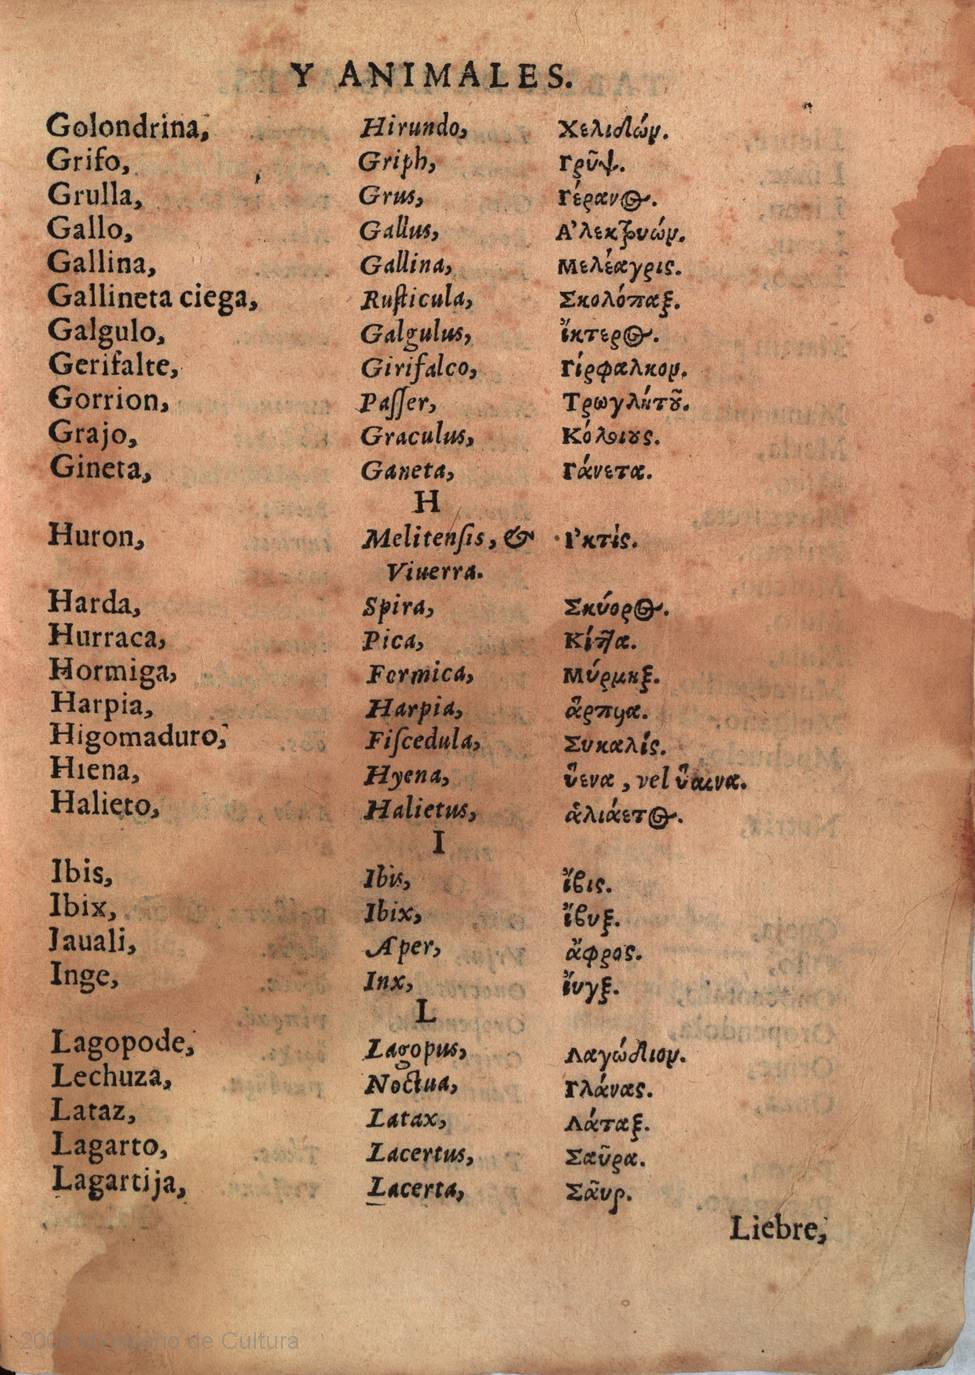 Y ANIMALES.
Golondrina, Hirundo, Χελιδών.
Grifo, Griph, Γρῦψ.
Grulla, Grus, Γέρανος.
Gallo, Gallus, Α᾽λεκτρυών.
Gallina, Gallina, Μελέαγρις.
Gallineta ciega, Ruſticula, Σκολόπαξ.
Galgulo, Galgulus, ἴκτερος.
Gerifalte, Girifalco, Γίρφαλκον.
Gorrion, Paſſer, Τρωγλήτου.
Grajo, Graculus, Κόλοιους.
Gineta, Ganeta, Γάνετα.
H
Huron, Melitenſis, & Ι᾽κτίς.
Viuerra.
Harda, Spira, Σκύορος.
Hurraca, Pica, Κίττα.
Hormiga, Formica, Μύρμηξ.
Harpia, Harpia, ἅρπυα.
Higomaduro, Fiſcedula, Συκαλίς.
Hiena, Hyena, ὕενα, vel ὕαινα.
Halieto, Halietus, ἁλιάετος.
I
Ibis, Ibis, ἴβις.
Ibix, Ibix, ἴβυξ.
Jauali, Aper, ἄφρος.
Inge, Inx, ἴυγξ.
L
Lagopode, Lagopus, Λαγώδιον.
Lechuza, Noctua, Γλάνας.
Lataz, Latax, Λάταξ.
Lagarto, Lacertus, Σαῦρα.
Lagartija, Lacerta, Σᾶυρ.
Liebre,
2009 Ministerio de Cultura